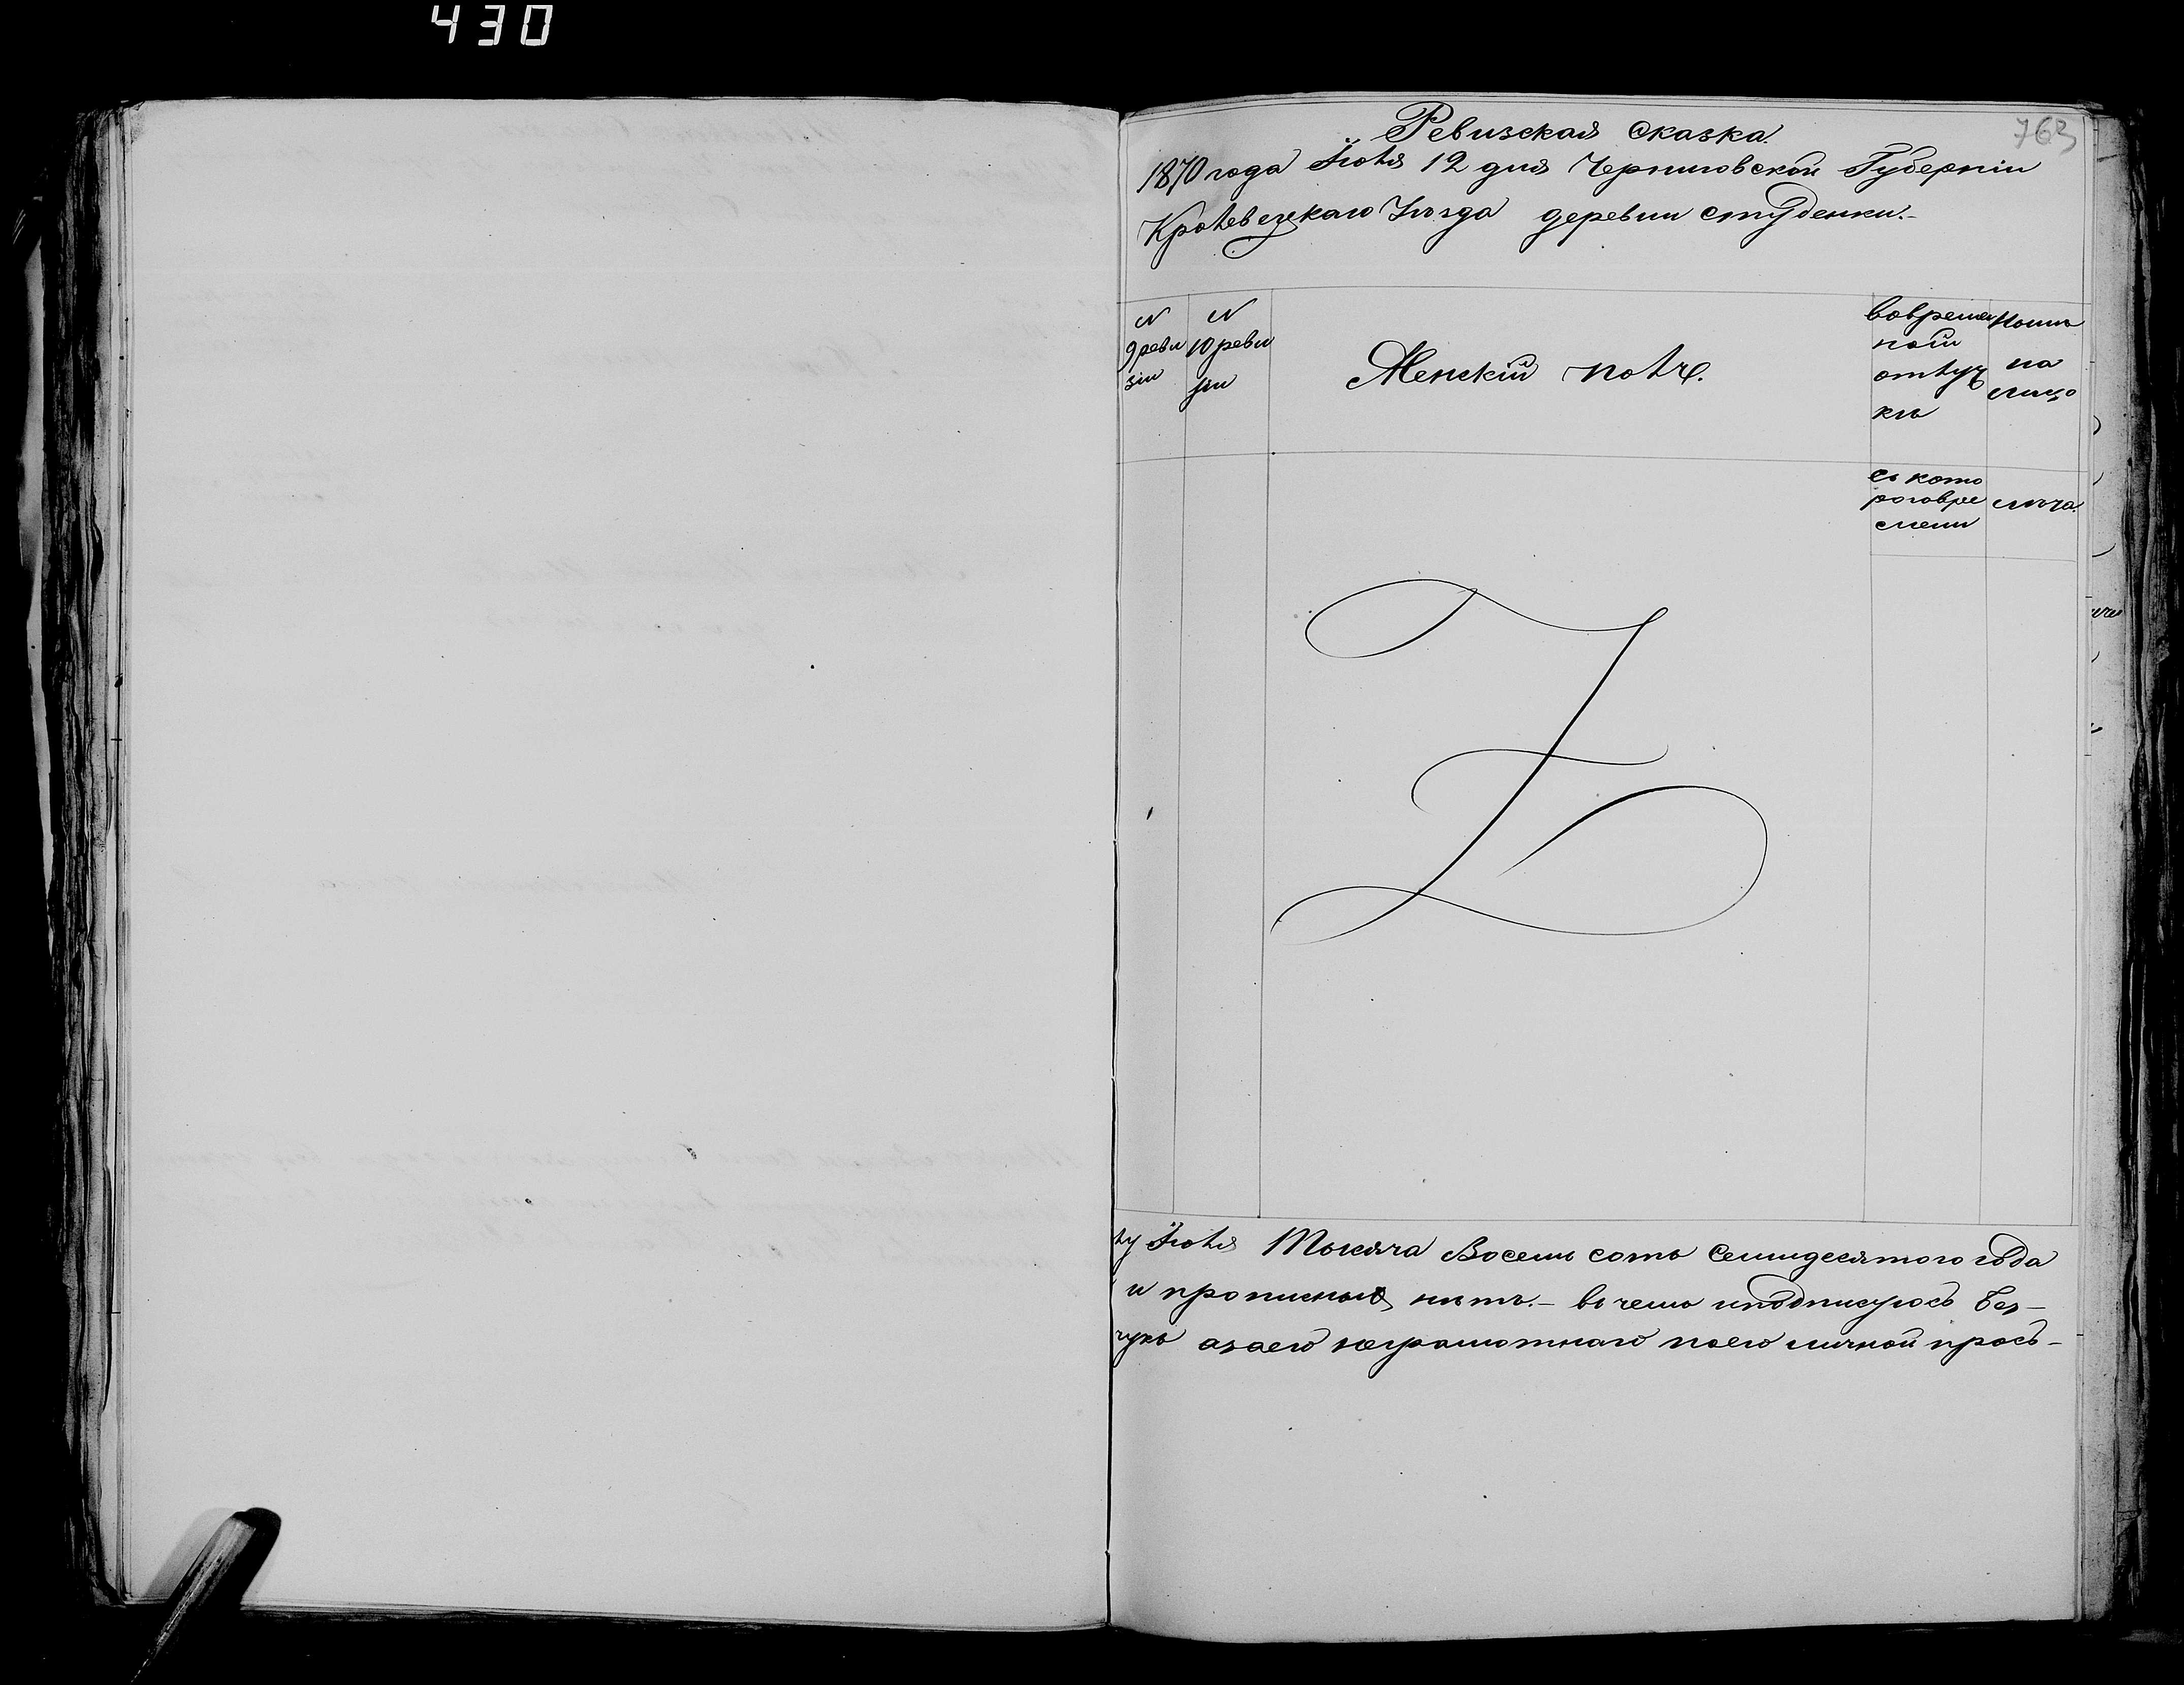 430
763
Ревизская сказка.
1870 года Іюля 12 дня Черниговской Губерніи
Кролевецкаго Уѣзда деревни Студенки.-
N 9 реви зіи
N 10 реви зіи
Женскій полъ.
во времен ной отлуч кѣ
Нынѣ на лицо
съ кото рого вре мени
лѣта.
лу Іюля Тысяча Восемь сотъ Семидесятого года
и прописных нѣтъ.- въ чемъ и подписуюсь Без-
чукъ а за его неграмотнаго по его личной прось-